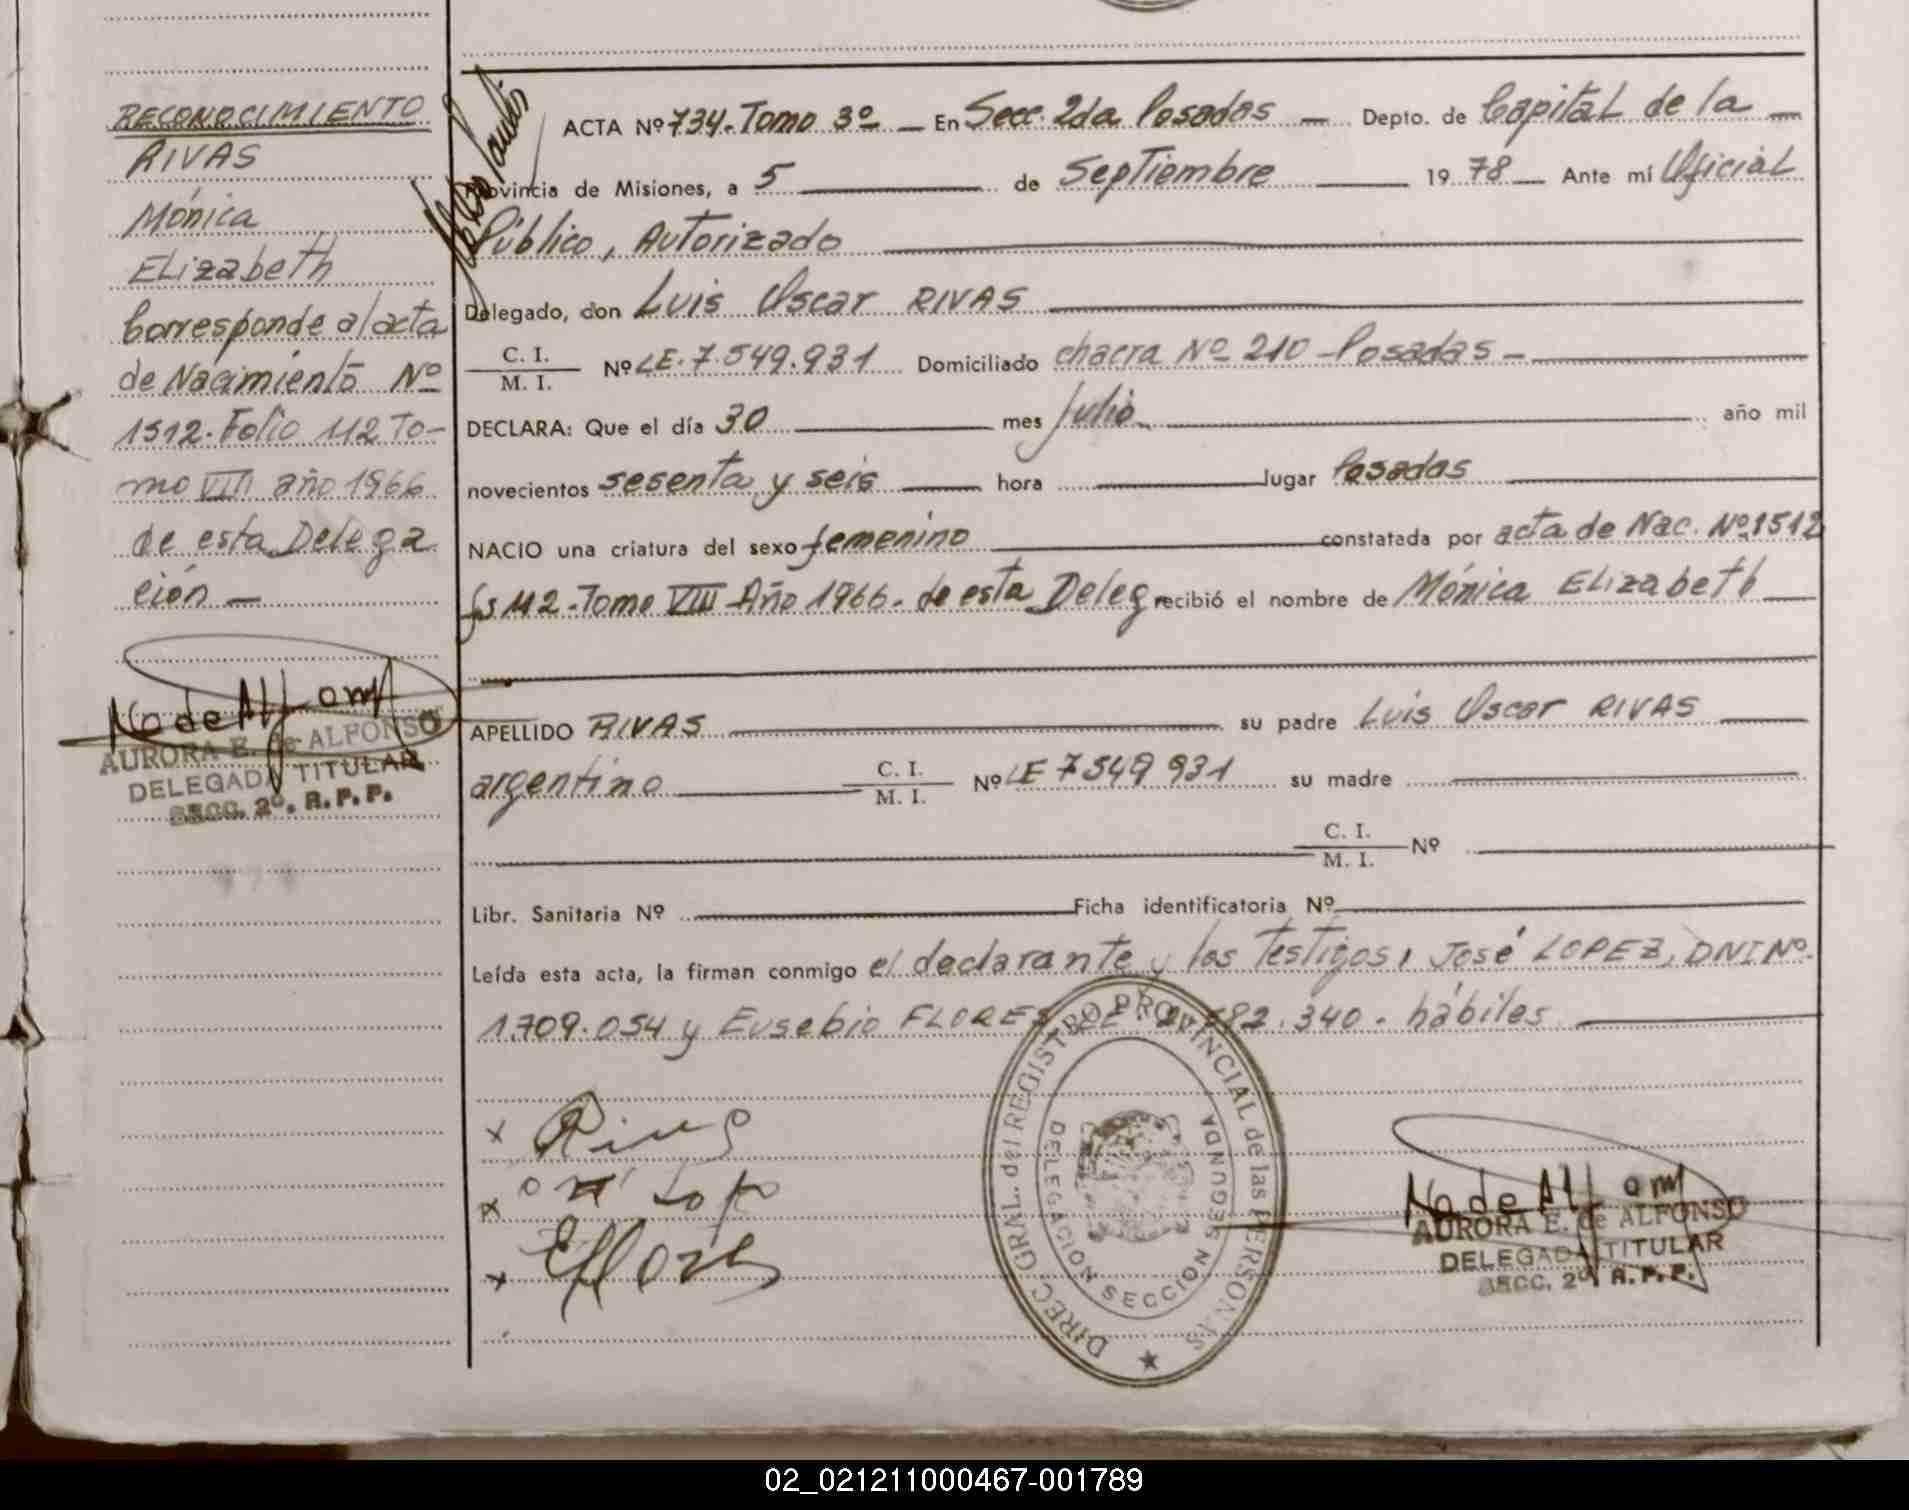 RECONOCIMIENTO
RIVAS
Mónica
Elizabeth
Corresponde al acta
de Nacimiento Nº
1512. Folio 112 To-
mo VIII año 1966
de esta Delega
ción —
AURORA E. de ALFONSO
DELEGADA TITULAR
SECC. 2º. R. P. P.
ACTA Nº 734. Tomo 3º — En Secc. 2da Posadas — Depto. de Capital de la —
Provincia de Misiones, a 5 — de Septiembre — 19 78 — Ante mí Oficial
Público, Autorizado
Delegado, don Luis Oscar RIVAS
C. I.
M. I. Nº LE. 7.549.931 Domiciliado chacra Nº 210 - Posadas -
DECLARA: Que el día 30 mes Julio año mil
novecientos sesenta y seis hora lugar Posadas
NACIO una criatura del sexo femenino constatada por acta de Nac. Nº 1512
fs 112. Tomo VIII Año 1966. de esta Deleg recibió el nombre de Mónica Elizabeth
APELLIDO RIVAS su padre Luis Oscar RIVAS
argentino C. I.
M. I. Nº LE 7549931 su madre
C. I.
M. I. Nº
Libr. Sanitaria Nº Ficha identificatoria Nº
Leída esta acta, la firman conmigo el declarante y los Testigos, José LOPEZ, DNI Nº.
1.709.054 y Eusebio FLORES 340. hábiles
x Rivas
x
x EFlores
DIREC. GRAL. del REGISTRO PROVINCIAL de las PERSONAS
DELEGACION SECCION SEGUNDA
AURORA E. de ALFONSO
DELEGADA TITULAR
SECC. 2º. R. P. P.
02_021211000467-001789